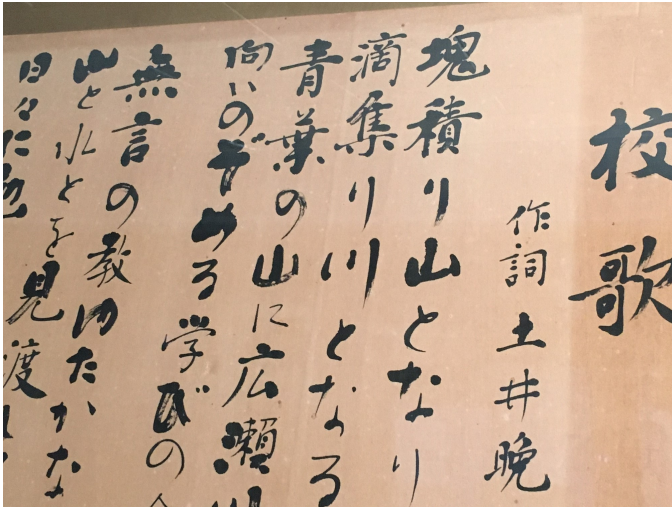 校歌
作詞 土井晩
塊積り山となり
滴集り川となる
青葉の山に広瀬川
向いのぞめる学びの
無言の教ゆたかな
山と水とを見渡
日々に